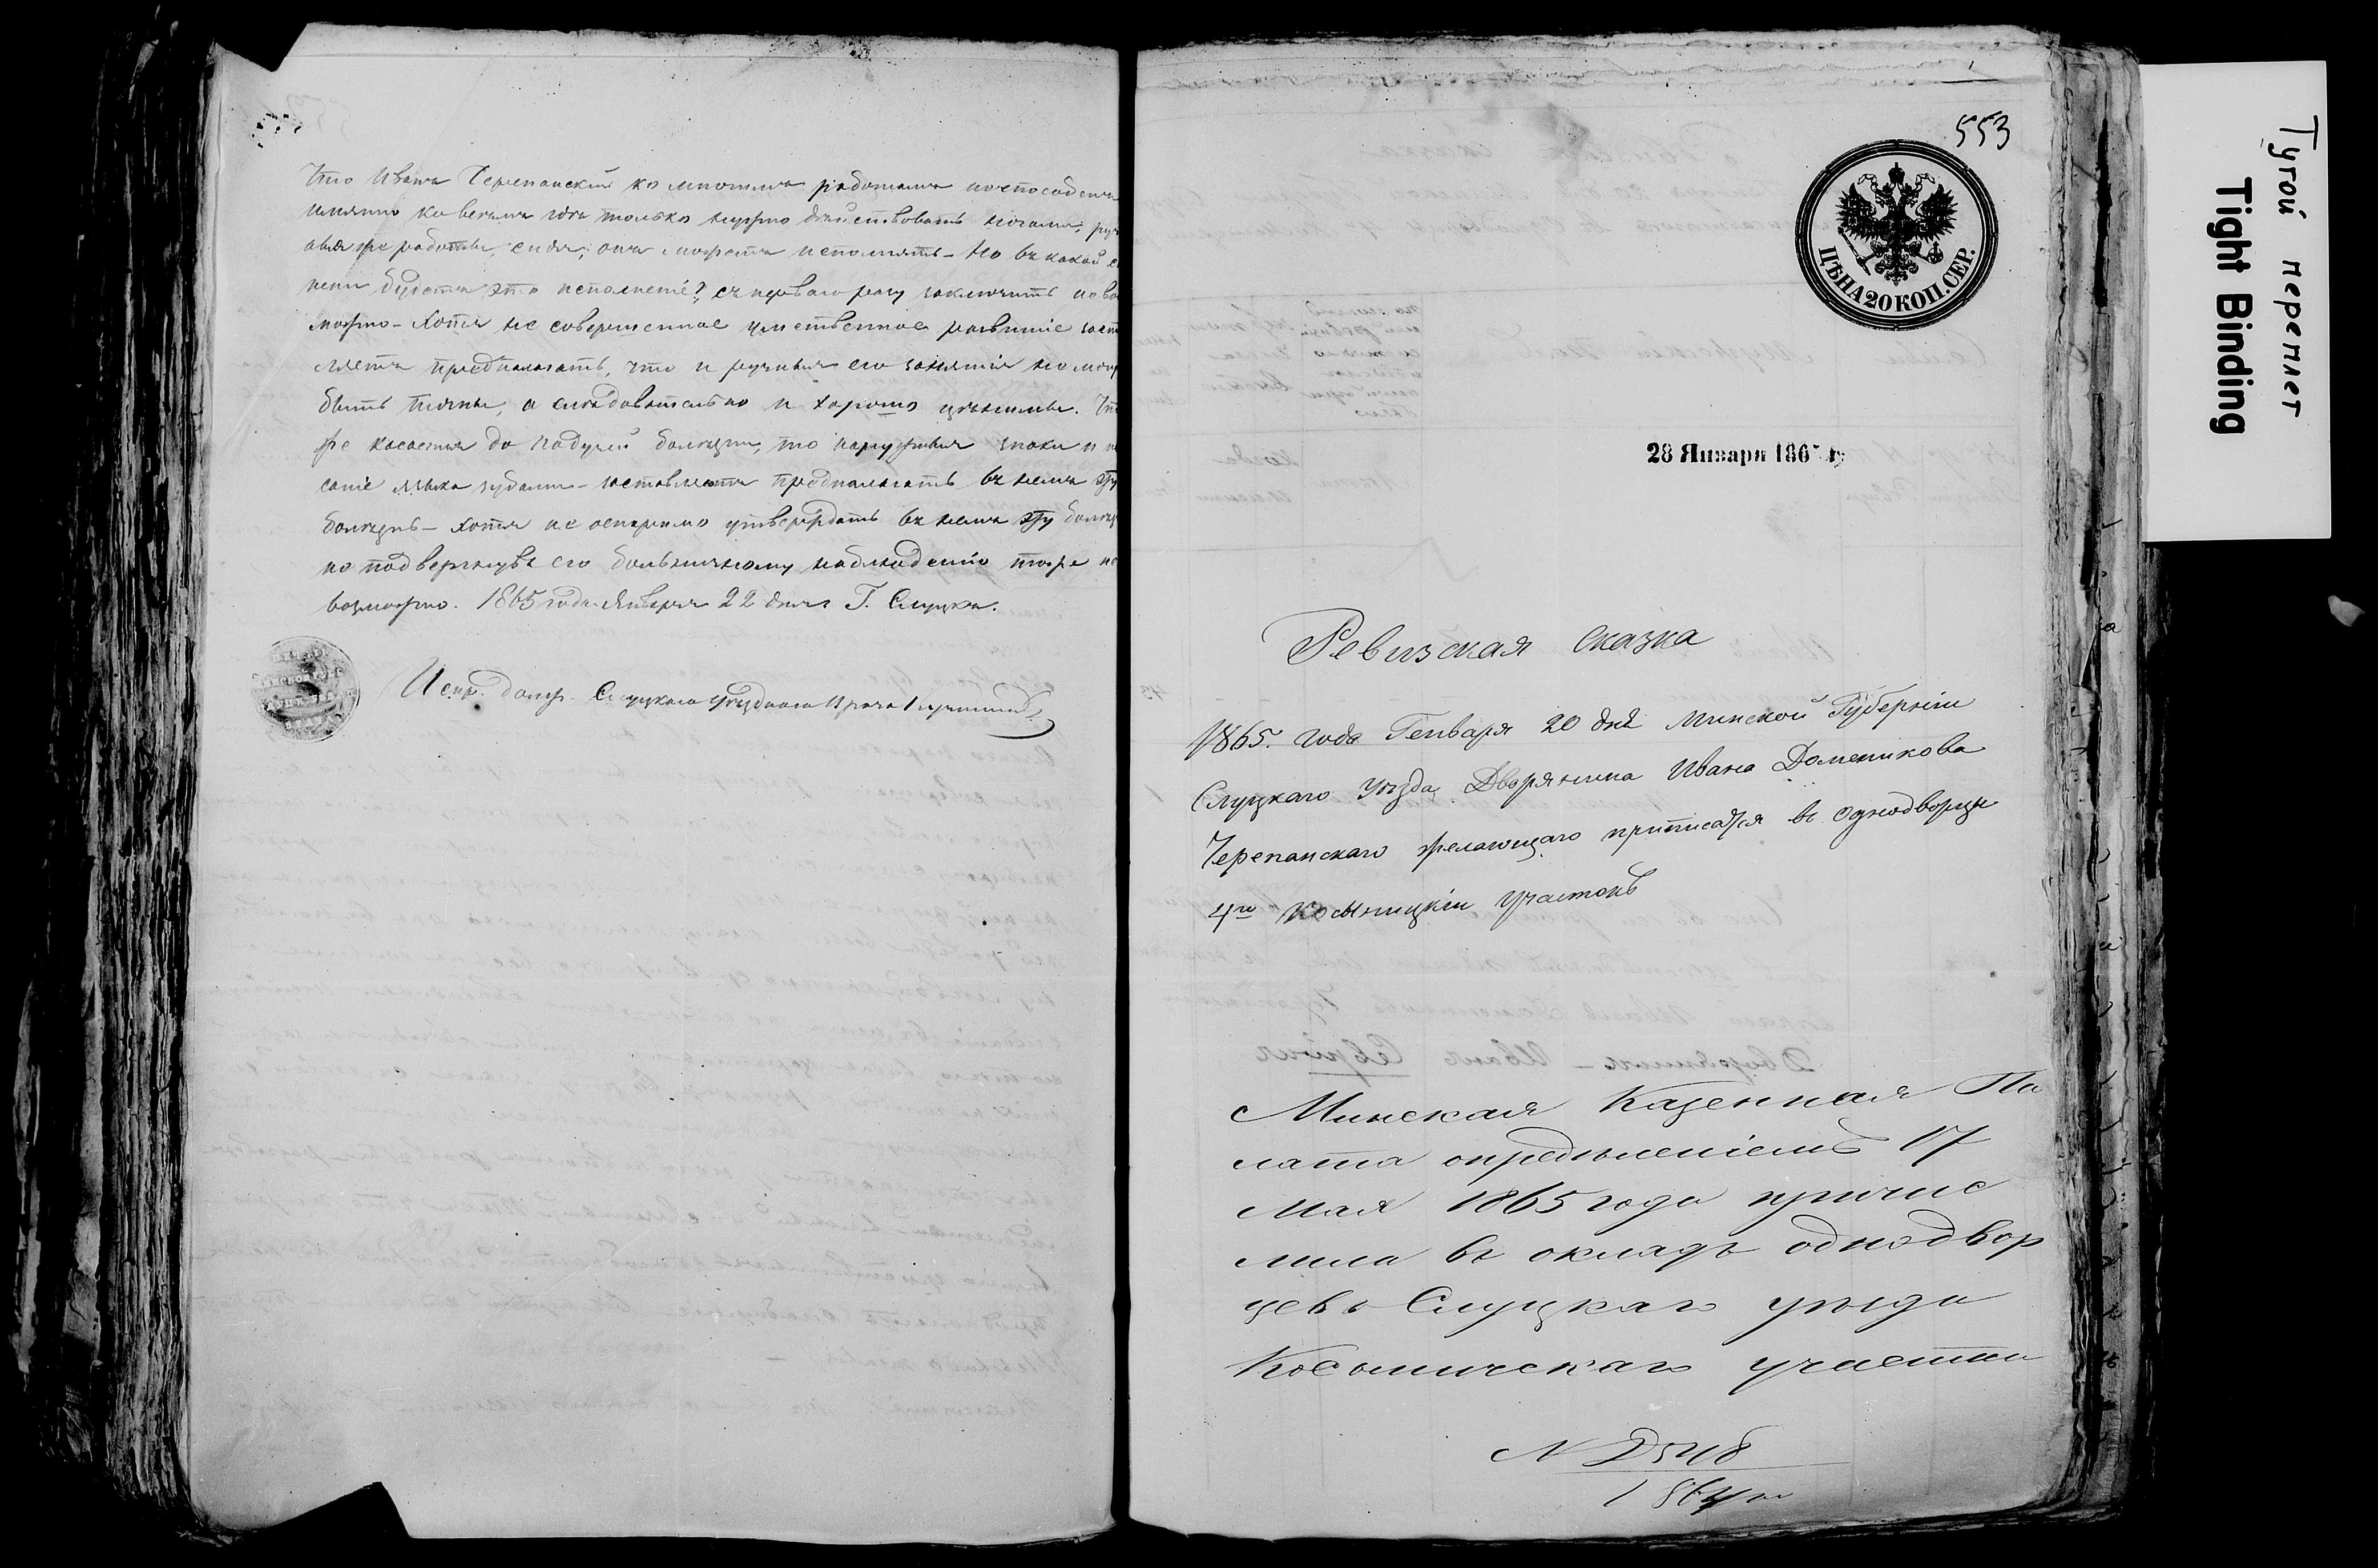 Что Иванъ Черепанскій ко многимъ работамъ неспособенъ
имянно ко всемъ где только нужно действовать ногами, руч
ныя же работы, сидя, онъ можетъ исполнять – Но въ какой с
пени будетъ это исполненіе?, съ перваго разу заключить нево
можно – Хотя не совершенное умственное развитіе заст
ляетъ предполагать, что и ручныя его занятія не могу
быть точны, а следовательно и хорошо ценимы. Чт
же касается до падучей болезни, то наружныя знаки и
саніе языка зубами – заставляетъ предполагать въ немъ эту
болезнь – хотя не оспоримо утверждать въ немъ эту болез
не подвергнувъ его больничному наблюденію тоже не
возможно. 1865 года Января 22 дня Г. Слуцкъ.
Испр. долж. Слуцкаго Уезднаго Врача
553
ЦѢНА 20 КОП. СЕР.
28 Января 186
Ревизская Сказка
1865. года Генваря 20 дня Минской Губерніи
Слуцкаго Уезда, Дворянина Ивана Доменикова
Черепанскаго желающаго приписатся въ однодворцы
4го Участокъ
Минская Казенная Па
лата определеніемъ 17
Мая 1865 года причис
лила въ окладъ однодвор
цевъ Слуцкаго уезда
участка
N 2548
1864
Тугой переплет
Tight Binding